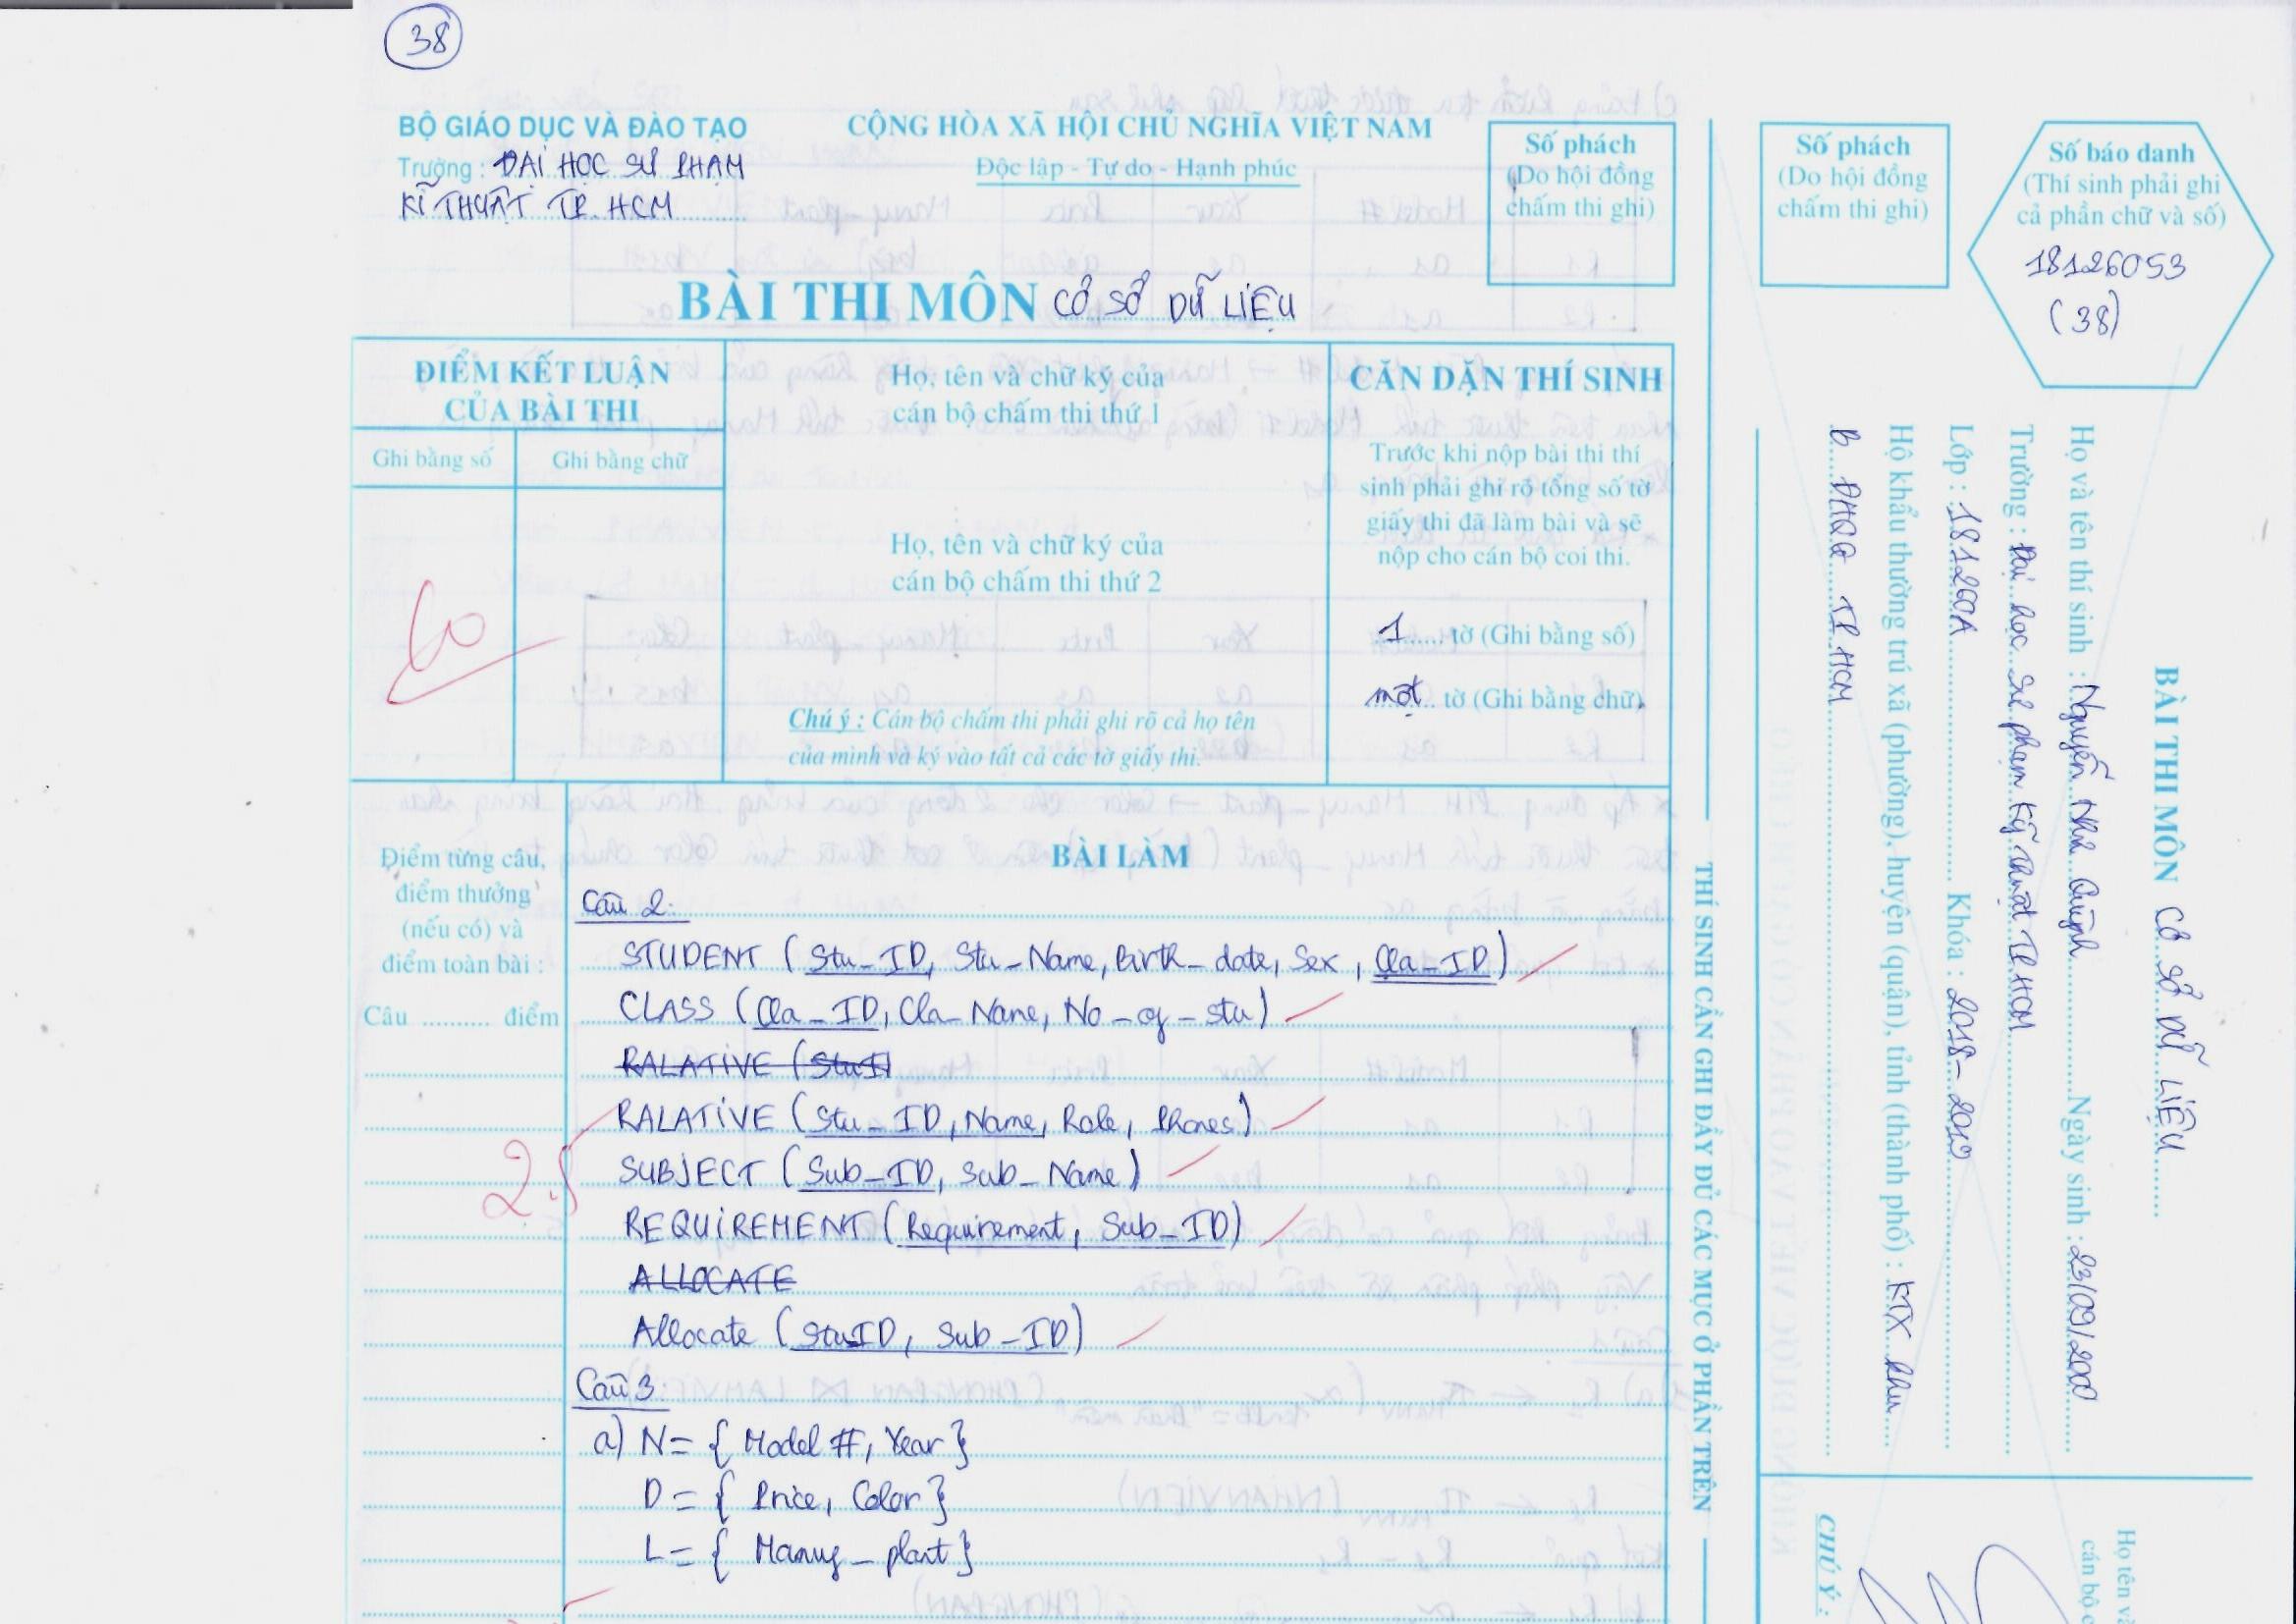 38
BỘ GIÁO DỤC VÀ ĐÀO TẠO
Trường : ĐẠI HỌC SƯ PHẠM
KĨ THUẬT TP. HCM
CỘNG HÒA XÃ HỘI CHỦ NGHĨA VIỆT NAM
Độc lập - Tự do - Hạnh phúc
Số phách
(Do hội đồng
chấm thi ghi)
Số phách
(Do hội đồng
chấm thi ghi)
Số báo danh
(Thí sinh phải ghi
cả phần chữ và số)
18126053
(38)
BÀI THI MÔN CƠ SỞ DỮ LIỆU
ĐIỂM KẾT LUẬN
CỦA BÀI THI
Ghi bằng số
Ghi bằng chữ
Họ, tên và chữ ký của
cán bộ chấm thi thứ 1
Họ, tên và chữ ký của
cán bộ chấm thi thứ 2
Chú ý : Cán bộ chấm thi phải ghi rõ cả họ tên
của mình và ký vào tất cả các tờ giấy thi.
CĂN DẶN THÍ SINH
Trước khi nộp bài thi thí
sinh phải ghi rõ tổng số tờ
giấy thi đã làm bài và sẽ
nộp cho cán bộ coi thi.
1 tờ (Ghi bằng số)
một tờ (Ghi bằng chữ)
Điểm từng câu,
điểm thưởng
(nếu có) và
điểm toàn bài :
Câu .......... điểm
2.5
BÀI LÀM
Câu 2:
STUDENT (Stu_ID, Stu_Name, Birth_date, Sex, Cla_ID)
CLASS (Cla_ID, Cla_Name, No_of_stu)
RALATIVE (StuI
RALATIVE (Stu_ID, Name, Role, Phones)
SUBJECT (Sub_ID, Sub_Name)
REQUIREMENT (Requirement, Sub_ID)
ALLOCATE
Allocate (StuID, Sub_ID)
Câu 3:
a) N = { Model #, Year }
D = { Price, Color }
L = { Manuf_plant }
THÍ SINH CẦN GHI ĐẦY ĐỦ CÁC MỤC Ở PHẦN TRÊN
BÀI THI MÔN CƠ SỞ DỮ LIỆU
Họ và tên thí sinh : Nguyễn Như Quỳnh Ngày sinh : 23/09/2000
Trường : Đại học Sư phạm Kỹ thuật TP.HCM
Lớp : 181260A Khóa : 2018-2019
Hộ khẩu thường trú xã (phường), huyện (quận), tỉnh (thành phố) : KTX khu
B ĐHQG TP.HCM
CHÚ Ý :
Họ tên
cán bộ